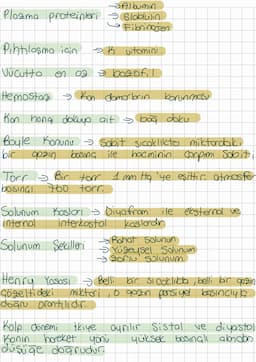 Plazma proteinleri → Albumin
→ Globulin
→ Fibrinojen
Pıhtılaşma için → K vitamini
Vücutta en az → bazofil
Hemostaz → Kan damarının korunması
Kan hangi dokuya ait → bağ doku
Boyle Kanunu → Sabit sıcaklıkta miktardaki
bir gazın basınç ile hacminin çarpımı sabittir.
Torr → Bir torr 1 mmHg 'ye eşittir. atmosfer
basıncı 760 torr.
Solunum Kasları → Diyafram ile eksternal ve
internal interkostal kaslardır
Solunum Şekilleri → Rahat Solunum
→ Yüzeysel Solunum
→ Zorlu Solunum
Henry Yasası → Belli bir sıcaklıkta, belli bir gazın
çözeltideki miktarı, o gazın parsiyel basıncıyla
doğru orantılıdır.
Kalp dönemi ikiye ayrılır Sistol ve diyastol
Kanın hareket yönü yüksek basınçlı alandan
düşüğe doğrudur.